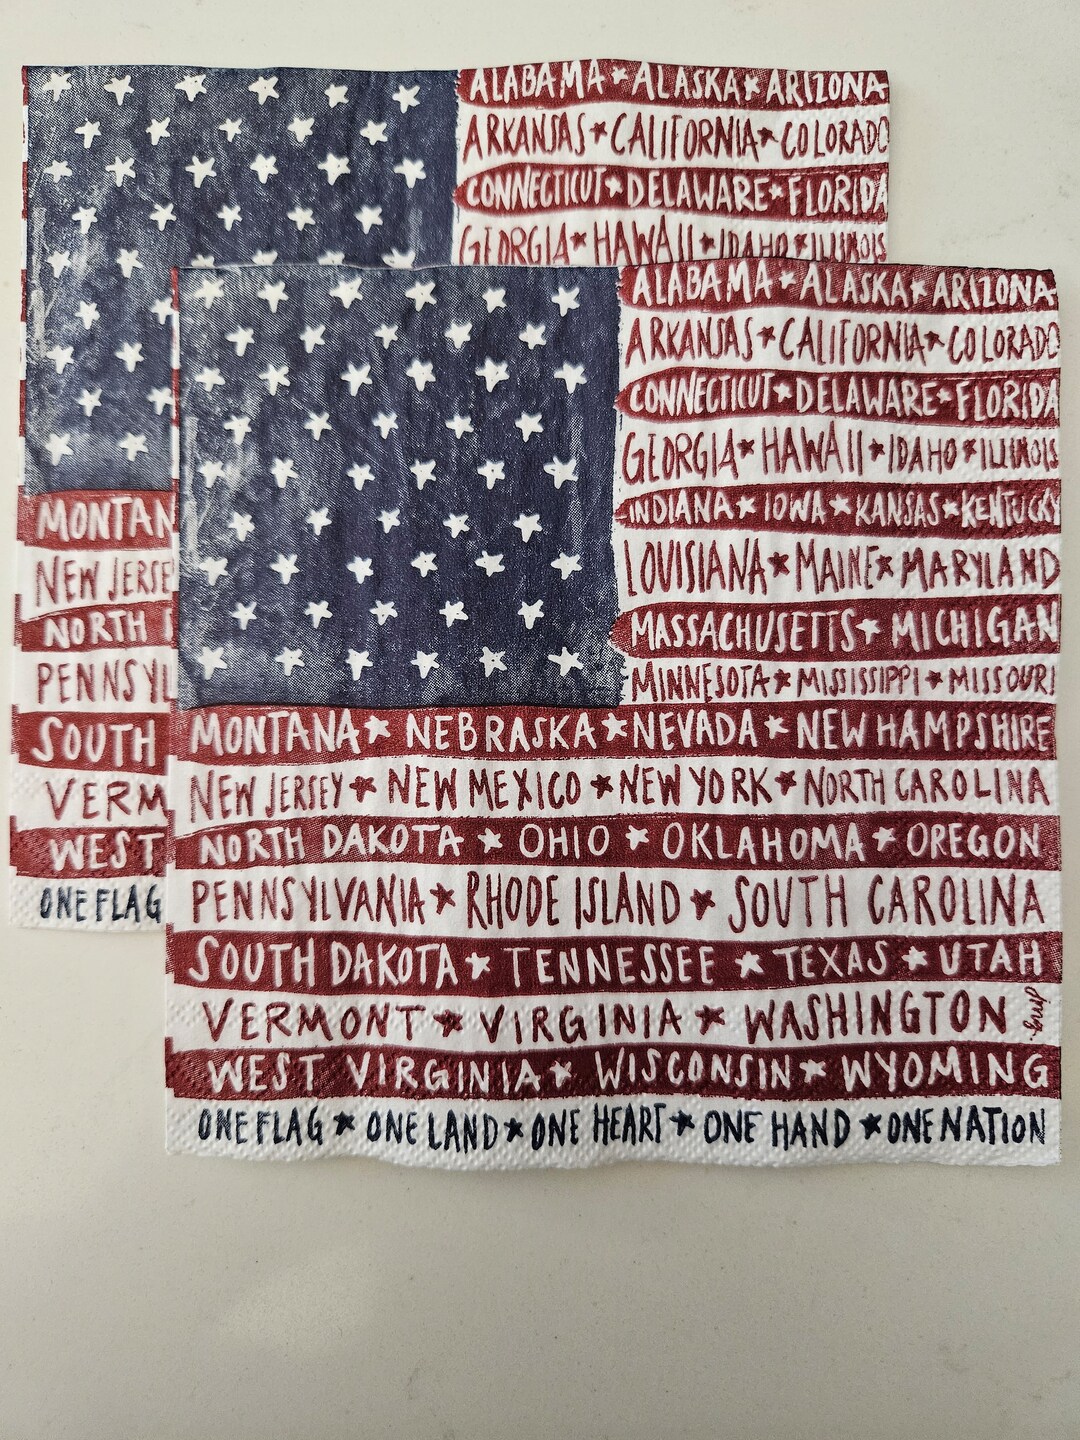 ALABAMA ★ ALASKA ★ ARIZONA
ARKANSAS ★ CALIFORNIA ★ COLORADO
CONNECTICUT ★ DELAWARE ★ FLORIDA
GEORGIA ★ HAWAII ★ IDAHO ★ ILLINOIS
MONTAN
NEW JERSE
NORTH
PENNSYL
SOUTH
VERM
WEST
ONE FLAG
ALABAMA ★ ALASKA ★ ARIZONA
ARKANSAS ★ CALIFORNIA ★ COLORADO
CONNECTICUT ★ DELAWARE ★ FLORIDA
GEORGIA ★ HAWAII ★ IDAHO ★ ILLINOIS
INDIANA ★ IOWA ★ KANSAS ★ KENTUCKY
LOUISIANA ★ MAINE ★ MARYLAND
MASSACHUSETTS ★ MICHIGAN
MINNESOTA ★ MISSISSIPPI ★ MISSOURI
MONTANA ★ NEBRASKA ★ NEVADA ★ NEW HAMPSHIRE
NEW JERSEY ★ NEW MEXICO ★ NEW YORK ★ NORTH CAROLINA
NORTH DAKOTA ★ OHIO ★ OKLAHOMA ★ OREGON
PENNSYLVANIA ★ RHODE ISLAND ★ SOUTH CAROLINA
SOUTH DAKOTA ★ TENNESSEE ★ TEXAS ★ UTAH
VERMONT ★ VIRGINIA ★ WASHINGTON
WEST VIRGINIA ★ WISCONSIN ★ WYOMING
ONE FLAG ★ ONE LAND ★ ONE HEART ★ ONE HAND ★ ONE NATION